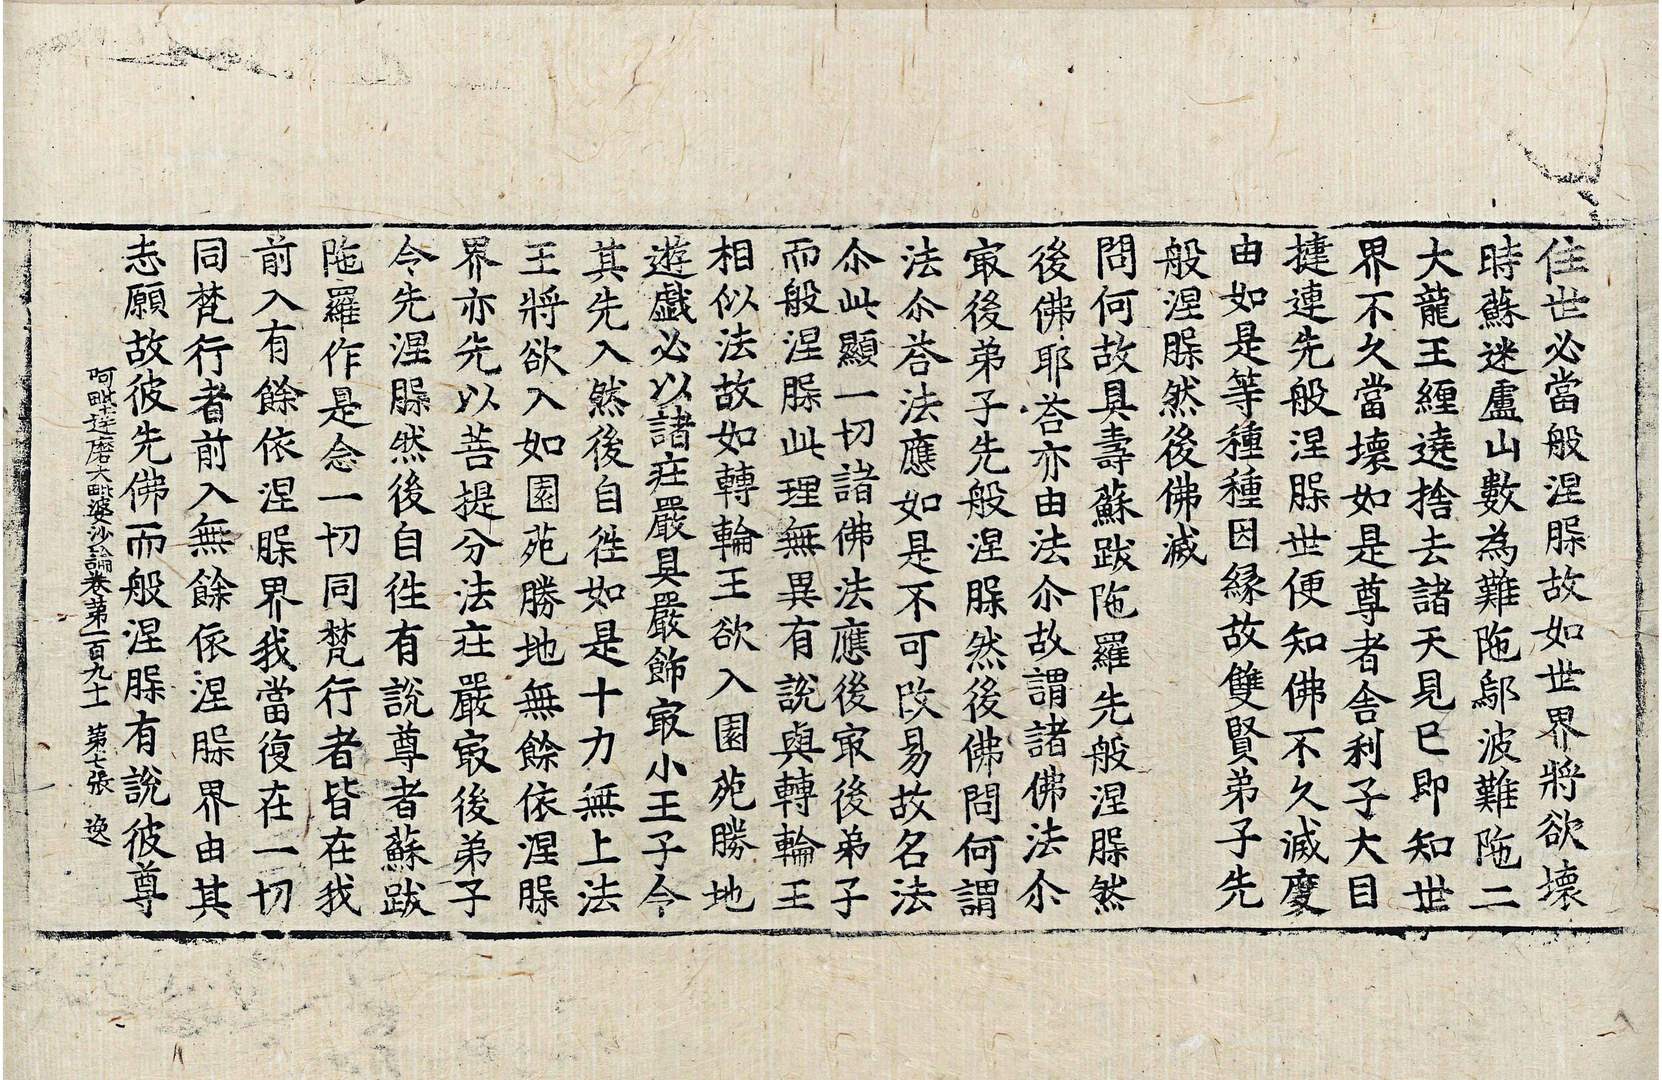 住世必當般涅脲故如世界將欲壞
時蘇迷盧山數為難陁鄔波難陁二
大龍王纏遶捨去諸天見已即知世
界不久當壞如是尊者舍利子大目
揵連先般涅脲世便知佛不久滅度
由如是等種種因緣故雙賢弟子先
般涅脲然後佛滅
問何故具壽蘇跋陁羅先般涅脲然
後佛耶荅亦由法尒故謂諸佛法尒
㝡後弟子先般涅脲然後佛問何謂
法尒荅法應如是不可改易故名法
尒此顯一切諸佛法應後㝡後弟子
而般涅脲此理無異有說與轉輪王
相似法故如轉輪王欲入園苑勝地
遊戲必以諸庄嚴具嚴飾㝡小王子令
其先入然後自徃如是十力無上法
王將欲入如園苑勝地無餘依涅脲
界亦先以菩提分法庄嚴㝡後弟子
令先涅脲然後自徃有說尊者蘇跋
陁羅作是念一切同梵行者皆在我
前入有餘依涅脲界我當復在一切
同梵行者前入無餘依涅脲界由其
志願故彼先佛而般涅脲有說彼尊
阿毗達磨大毗婆沙論卷第一百九十一 第七張 逸